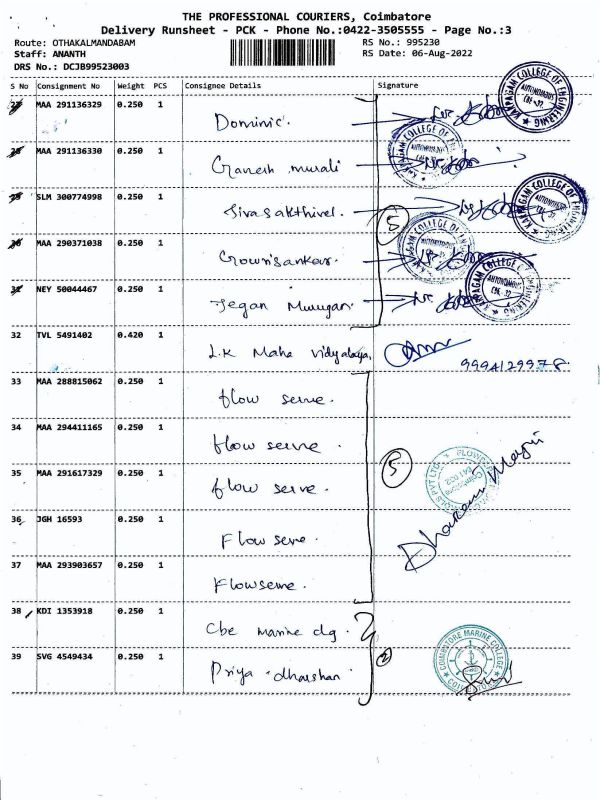 THE PROFESSIONAL COURIERS, Coimbatore
Delivery Runsheet - PCK - Phone No.:0422-3505555 - Page No.:3
Route: OTHAKALMANDABAM RS No.: 995230
Staff: ANANTH RS Date: 06-Aug-2022
DRS No.: DCJB99523003
S No Consignment No Weight PCS Consignee Details Signature
MAA 291136329 0.250 1 Dominic. KARPAGAM COLLEGE OF ENGINEERING AUTONOMOUS CBE-32
MAA 291136330 0.250 1 Ganesh murali
SLM 300774998 0.250 1 Sivasakthivel. KARPAGAM COLLEGE OF ENGINEERING AUTONOMOUS CBE-32
5
MAA 290371038 0.250 1 Gowrisankar.
NEY 50044467 0.250 1 Jegan Murugan. KARPAGAM COLLEGE OF ENGINEERING AUTONOMOUS CBE-32
32 TVL 5491402 0.420 1 L.K Maha Vidyalaya. 9994129978
33 MAA 288815062 0.250 1 flow serve.
34 MAA 294411165 0.250 1 flow serve.
35 MAA 291617329 0.250 1 flow serve. 5
36 JGH 16593 0.250 1 Flow serve.
37 MAA 293903657 0.250 1 Flowserve.
38 KDI 1353918 0.250 1 Cbe marine clg.
39 SVG 4549434 0.250 1 Priya dharshan 2 COIMBATORE MARINE COLLEGE COIMBATORE